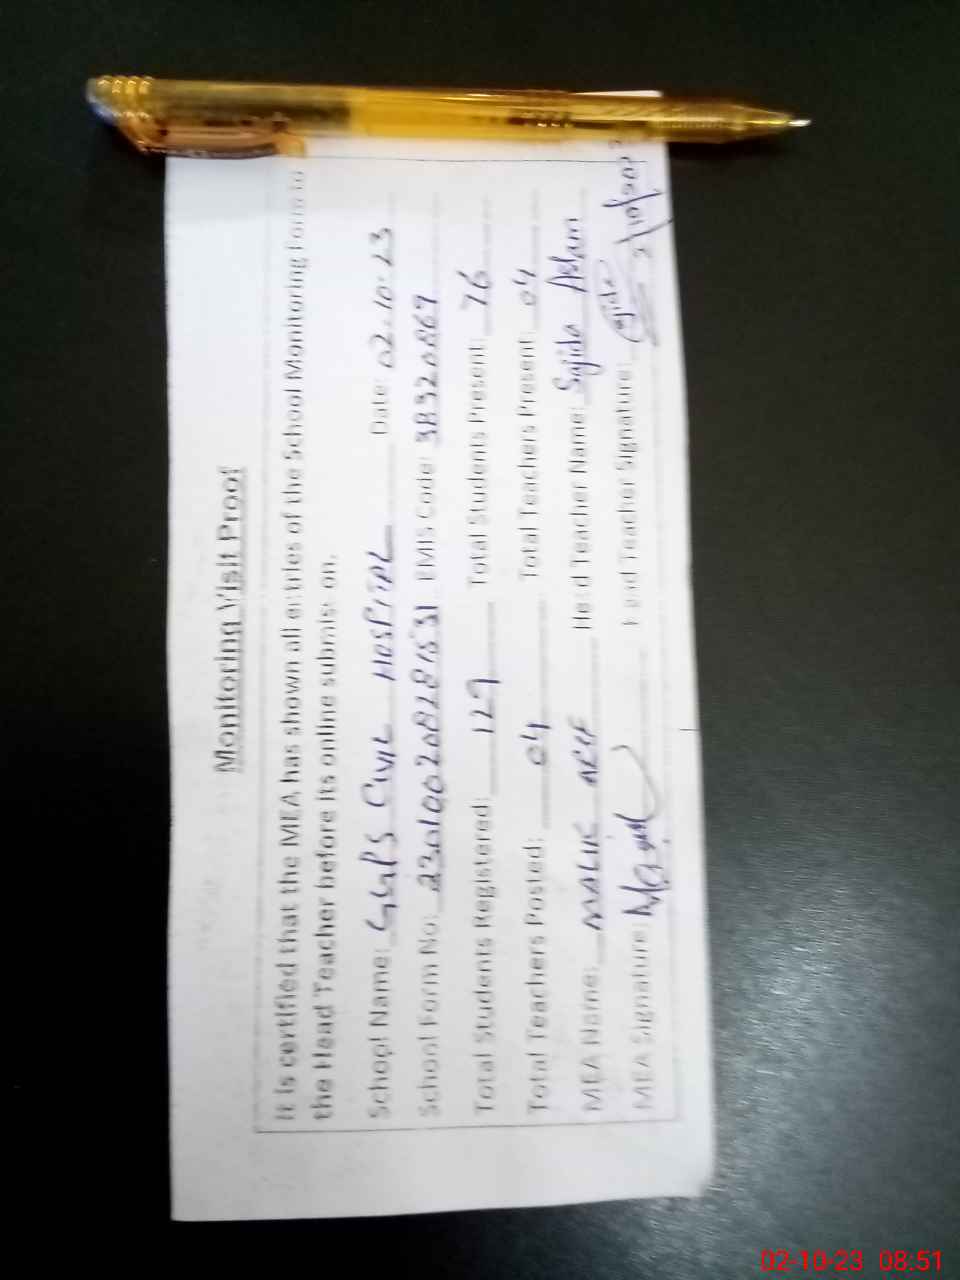 Monitoring Visit Proof
It is certified that the MEA has shown all entries of the School Monitoring Form to
the Head Teacher before its online submission.
School Name: GGPS CIVIL HOSPITAL Date: 02.10.23
School Form No: EMIS Code: 38320869
Total Students Registered: 129 Total Students Present: 76
Total Teachers Posted: 04 Total Teachers Present: 04
MEA Name: MALIK ARIF Head Teacher Name: Sajida Aslam
MEA Signature: Head Teacher Signature: Sajida
02-10-23 08:51